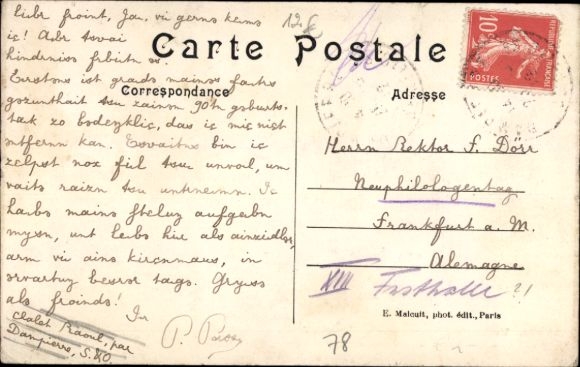 libr froint, Jaa, vi gerns kems
iç! Abr tsvai
hinderniss frbitn s.
Erstons ist grads mainos fatrs
gezunthait tsu zainm 90tn geburts-
tak zo bodenkliç, das iç miç nist
ntfernn kan. Tsvaitns bin iç
zelpst nox fil tsu unvol, um
vaits raizn tsu untrnemn. Iç
haibs mains steluy aufgebn
mysn, unt lebs hir als ainziedler,
arm vi ains kirçnmaus, in
ervartuy besrer tags. Gryss
als froinds! Ir
P. Passy
Chalet Raoul, par
Dampierre, S.&O.
Carte Postale
Correspondance
Adresse
RÉPUBLIQUE FRANÇAISE
10
POSTES
Herrn Rektor F. Dörr
Neuphilologentag
Frankfurt a. M.
Alemagne
XIII Festhalle ?!
E. Malcuit, phot. édit., Paris
78